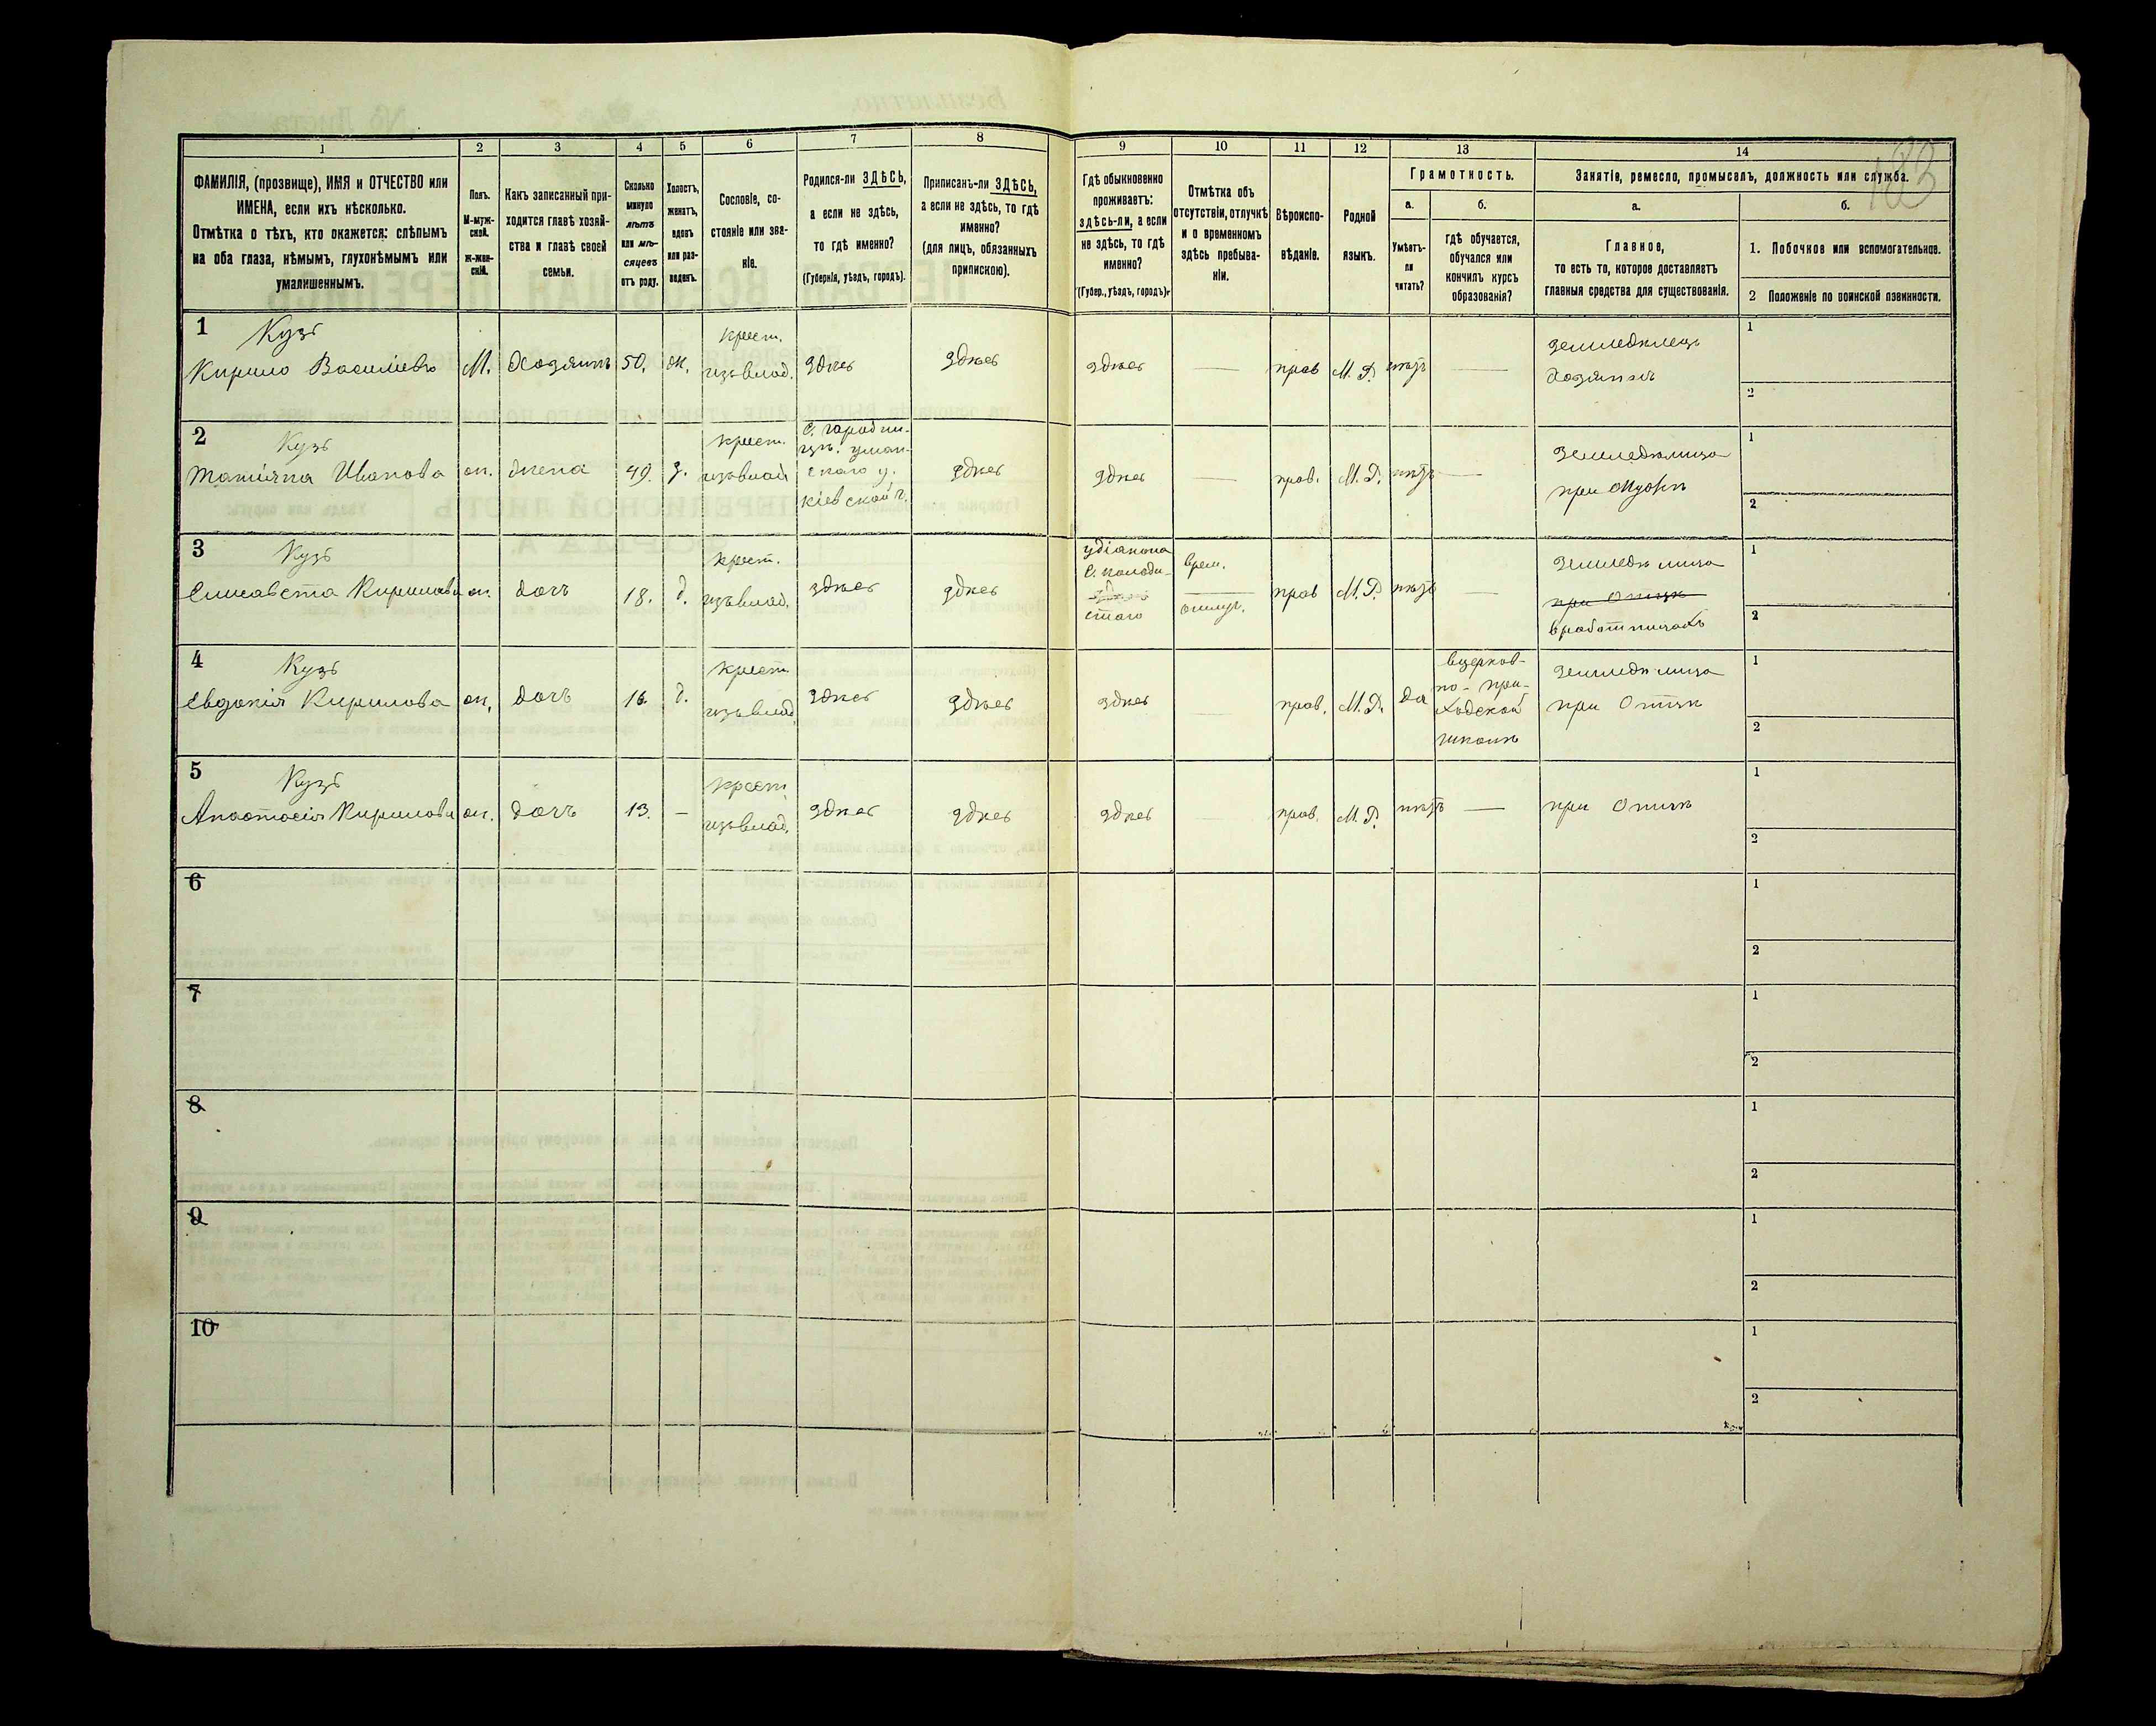 183
1
2
3
4
5
6
7
8
9
10
11
12
13
14
ФАМИЛІЯ, (прозвище), ИМЯ и ОТЧЕСТВО или
ИМЕНА, если ихъ нѣсколько.
Отмѣтка о тѣхъ, кто окажется: слѣпымъ
на оба глаза, нѣмымъ, глухонѣмымъ или
умалишеннымъ.
Полъ.
М-муж-
ской.
Ж-жен-
скій.
Какъ записанный при-
ходится главѣ хозяй-
ства и главѣ своей
семьи.
Сколько
минуло
лѣтъ
или мѣ-
сяцевъ
отъ роду.
Холостъ,
женатъ,
вдовъ
или раз-
веденъ.
Сословіе, со-
стояніе или зва-
ніе.
Родился-ли ЗДѢСЬ,
а если не здѣсь,
то гдѣ именно?
(Губернія, уѣздъ, городъ).
Приписанъ-ли ЗДѢСЬ,
а если не здѣсь, то гдѣ
именно?
(для лицъ, обязанныхъ
припискою).
Гдѣ обыкновенно
проживаетъ:
здѣсь-ли, а если
не здѣсь, то гдѣ
именно?
(Губер., уѣздъ, городъ).
Отмѣтка объ
отсутствіи, отлучкѣ
и о временномъ
здѣсь пребыва-
ніи.
Вѣроиспо-
вѣданіе.
Родной
языкъ.
Грамотность.
а.
Умѣетъ-
ли
читать?
б.
гдѣ обучается,
обучался или
кончилъ курсъ
образованія?
Занятіе, ремесло, промыселъ, должность или служба.
а.
Главное,
то есть то, которое доставляетъ
главныя средства для существованія.
б.
1. Побочное или вспомогательное.
2 Положеніе по воинской повинности.
1 Кузь
Кирило Василіевъ
М.
Хозяинъ
50.
ж.
крест.
изъ влад.
здѣсь
здѣсь
здѣсь
—
прав
М. Р.
нѣтъ
—
Земледѣлецъ
Хозяинъ
1
2
2 Кузь
Татіяна Иванова
ж.
жена
49.
з.
крест.
изъ влад
С. Городни-
цы. Уман-
скаго у.
кіевской г.
здѣсь
здѣсь
прав.
М. Р.
нѣтъ
—
Земледѣлица
при Мужѣ
1
2
3 Кузь
Елисавета Кирилова
ж.
дочь
18.
д.
крест.
изъ влад.
здѣсь
здѣсь
удіакона
С. Колоди-
стаго
врем.
отлуч.
прав
М. Р.
нѣтъ
—
Земледѣлица
при Отцѣ
в работницахъ
1
2
4 Кузь
Евдокія Кирилова
ж.
дочь
16.
д.
крест
изъ влад
здѣсь
здѣсь
здѣсь
прав.
М. Р.
да
в церков-
но-при-
ходской
школѣ
Земледѣлица
при Отцѣ
1
2
5 Кузь
Анастасія Кирилова
ж.
дочь
13.
—
крест
изъ влад.
здѣсь
здѣсь
здѣсь
прав.
М. Р.
нѣтъ
—
при Отцѣ
1
2
6
1
2
7
1
2
8
1
2
9
1
2
10
1
2